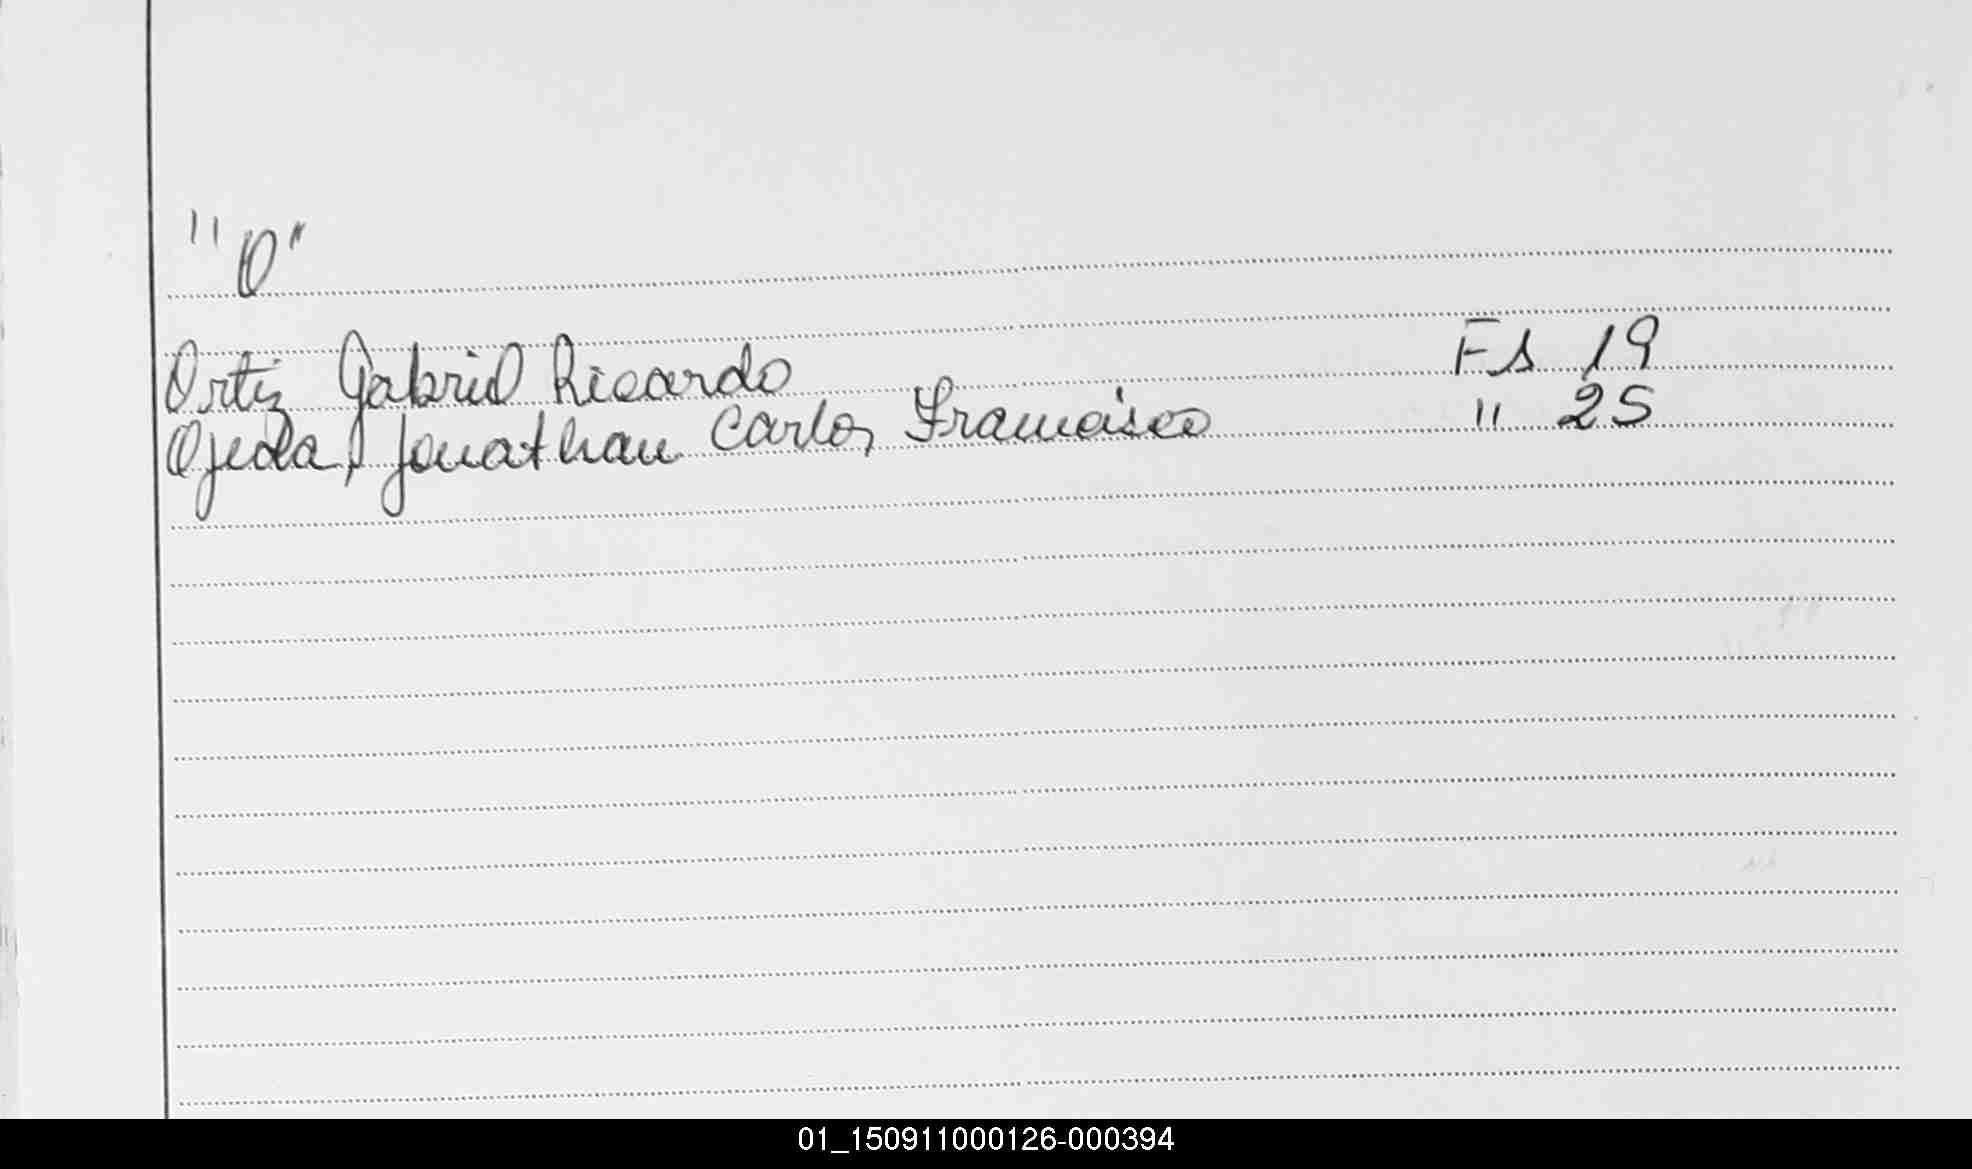 "O"
Ortiz Gabriel Ricardo Fs 19
Ojeda, Jonathan Carlos Francisco " 25
01_150911000126-000394